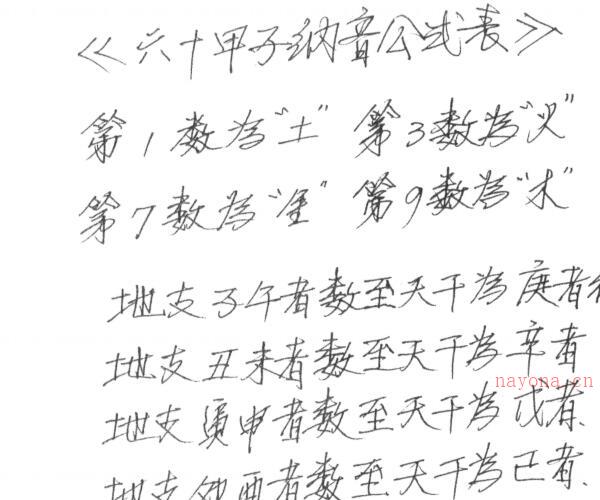 《六十甲子纳音公式表》
第1数為“土” 第3数為“火”
第7数為“金” 第9数為“木”
地支子午者数至天干為庚者
地支丑未者数至天干為辛者
nayona.cn
地支寅申者数至天干為戊者、
地支卯酉者数至天干為己者、